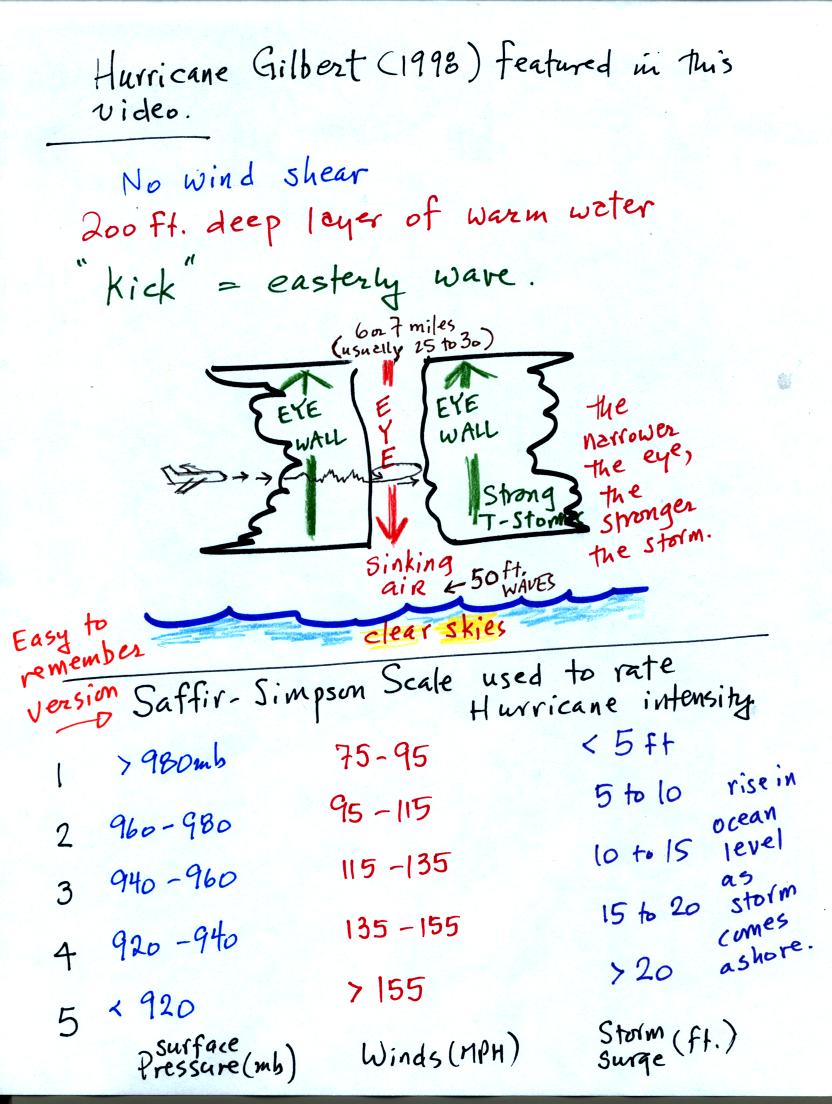 Hurricane Gilbert (1998) featured in this
video.
No wind shear
200 ft. deep layer of warm water
"kick" = easterly wave.
6 or 7 miles
(usually 25 to 30)
EYE
WALL
EYE
EYE
WALL
Strong
T-Storms
the
narrower
the eye,
the
stronger
the storm.
Sinking
air
← 50 ft.
WAVES
clear skies
Easy to
remember
version
Saffir-Simpson Scale used to rate
Hurricane intensity
1 >980mb 75-95 < 5 ft
2 960-980 95-115 5 to 10
3 940-960 115-135 10 to 15
4 920-940 135-155 15 to 20
5 < 920 > 155 > 20
rise in
ocean
level
as
storm
comes
ashore.
Surface
Pressure (mb)
Winds (MPH)
Storm
Surge (ft.)